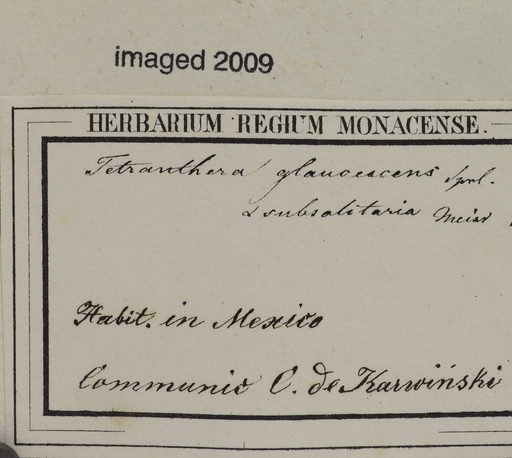 imaged 2009
HERBARIUM REGIUM MONACENSE.
Tetranthera glaucescens Sprl.
α subsolitaria Meisr
Habit. in Mexico
Communic C. de Karwiński